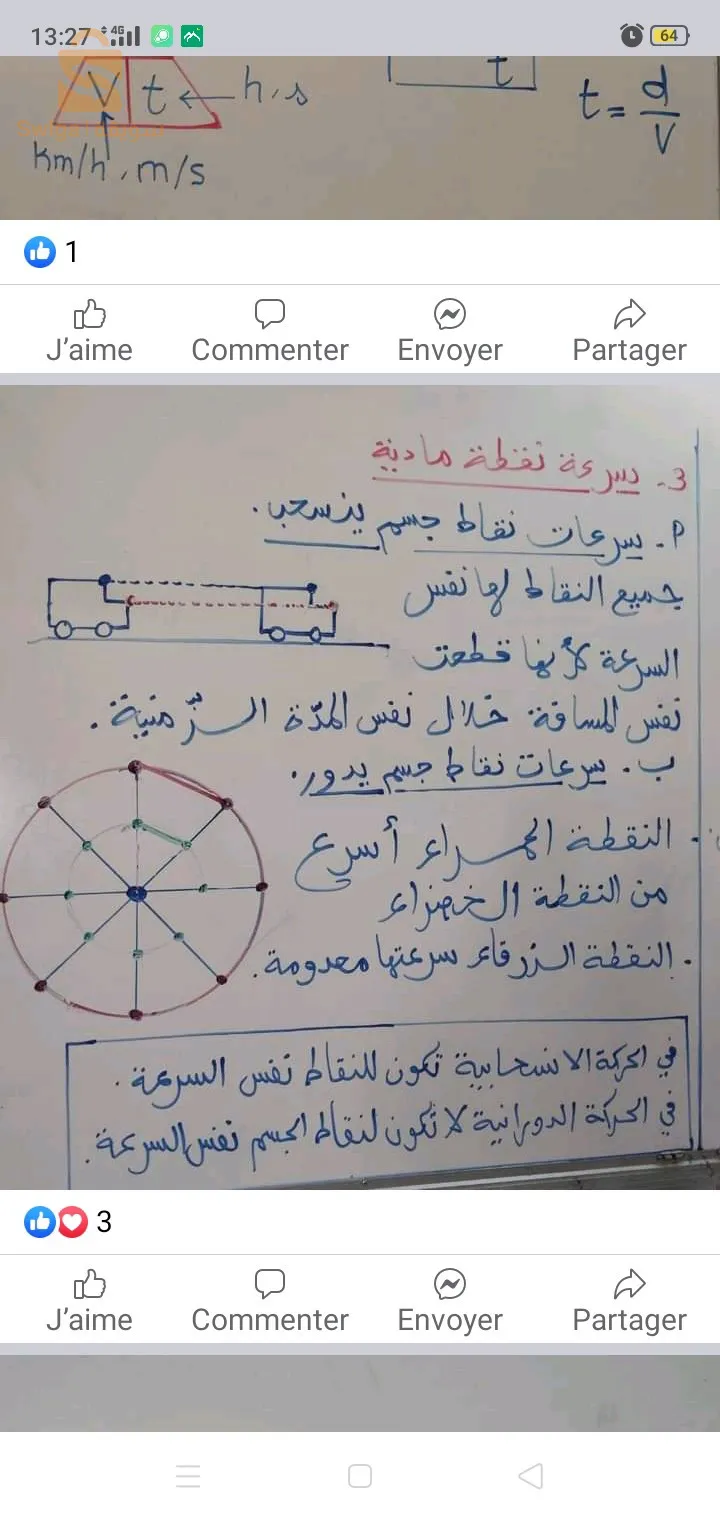 13:27
4G
64
V
t ← h, s
t
t = d/V
km/h, m/s
1
J'aime
Commenter
Envoyer
Partager
3- سرعة نقطة مادية
P- سرعات نقاط جسم ينسحب.
جميع النقاط لها نفس
السرعة لأنها قطعت
نفس المسافة خلال نفس المدّة الزّمنية.
ب. سرعات نقاط جسم يدور.
. النقطة الحمراء أسرع
من النقطة الخضراء
. النقطة الزرقاء سرعتها معدومة.
في الحركة الانسحابية تكون للنقاط نفس السرعة.
في الحركة الدورانية لا تكون لنقاط الجسم نفس السرعة.
3
J'aime
Commenter
Envoyer
Partager